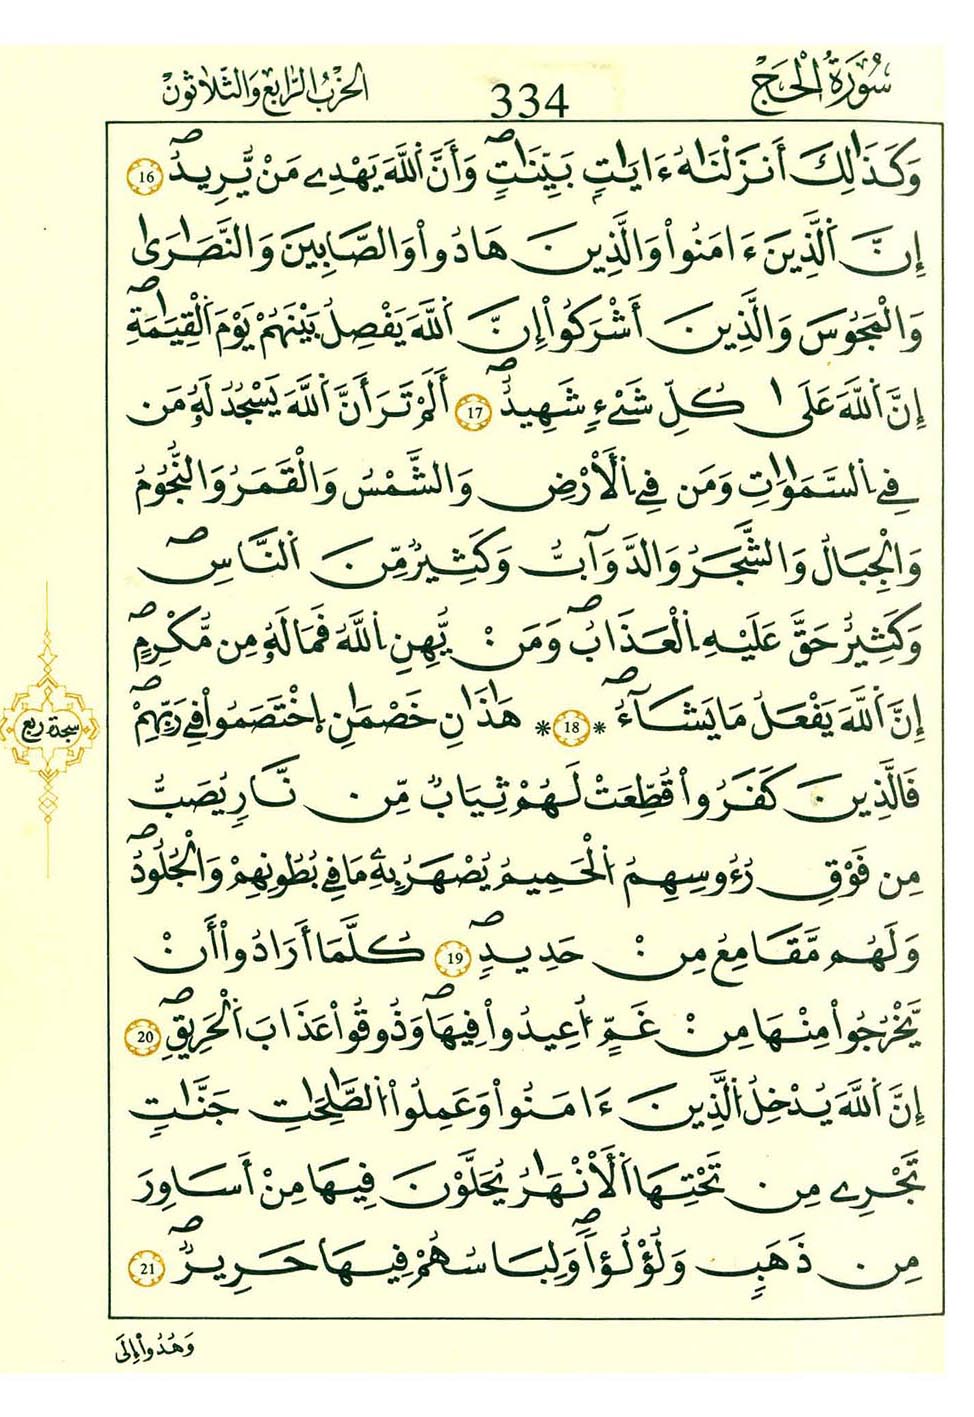 سُورَةُ الْحَجّ
334
الحزب الرابع والثلاثون
وَكَذَٰلِكَ أَنزَلْنَٰهُ ءَايَٰتٍۭ بَيِّنَٰتٍۖ وَأَنَّ اَ۬للَّهَ يَهْدِے مَنْ يُّرِيدُۖ 16
إِنَّ اَ۬لذِينَ ءَامَنُواْ وَالذِينَ هَادُواْ وَالصَّٰبِينَ وَالنَّصَٰرَىٰ
وَالْمَجُوسَ وَالذِينَ أَشْرَكُواْ إِنَّ اَ۬للَّهَ يَفْصِلُ بَيْنَهُمْ يَوْمَ اَ۬لْقِيَٰمَةِۖ
إِنَّ اَ۬للَّهَ عَلَىٰ كُلِّ شَےْءٖ شَهِيدٌۖ 17 أَلَمْ تَرَ أَنَّ اَ۬للَّهَ يَسْجُدُ لَهُۥ مَن
فِے اِ۬لسَّمَٰوَٰتِ وَمَن فِے اِ۬لْأَرْضِ وَالشَّمْسُ وَالْقَمَرُ وَالنُّجُومُ
وَالْجِبَالُ وَالشَّجَرُ وَالدَّوَآبُّ وَكَثِيرٌ مِّنَ اَ۬لنَّاسِۖ
وَكَثِيرٌ حَقَّ عَلَيْهِ اِ۬لْعَذَابُۖ وَمَنْ يُّهِنِ اِ۬للَّهُ فَمَا لَهُۥ مِن مُّكْرِمٍۖ
إِنَّ اَ۬للَّهَ يَفْعَلُ مَا يَشَآءُۖ * 18 * هَٰذَٰنِ خَصْمَٰنِ اِ۪خْتَصَمُواْ فِے رَبِّهِمْۖ
فَالذِينَ كَفَرُواْ قُطِّعَتْ لَهُمْ ثِيَابٌ مِّن نّ۪ارٖ يُصَبُّ
مِن فَوْقِ رُءُوسِهِمُ اُ۬لْحَمِيمُ يُصْهَرُ بِهِۦ مَا فِے بُطُونِهِمْ وَالْجُلُودُۖ
وَلَهُم مَّقَٰمِعُ مِنْ حَدِيدٖۖ 19 كُلَّمَا أَرَادُواْ أَنْ
يَّخْرُجُواْ مِنْهَا مِنْ غَمٍّ ا۟عِيدُواْ فِيهَاۖ وَذُوقُواْ عَذَابَ اَ۬لْحَرِيقِۖ 20
إِنَّ اَ۬للَّهَ يُدْخِلُ اُ۬لذِينَ ءَامَنُواْ وَعَمِلُواْ اُ۬لصَّٰلِحَٰتِ جَنَّٰتٖ
تَجْرِے مِن تَحْتِهَا اَ۬لْأَنْهَٰرُ يُحَلَّوْنَ فِيهَا مِنْ أَسَاوِرَ
مِن ذَهَبٖ وَلُؤْلُؤاٗۖ وَلِبَاسُهُمْ فِيهَا حَرِيرٌۖ 21
سجدة ربع
وَهُدُواْ إِلَى